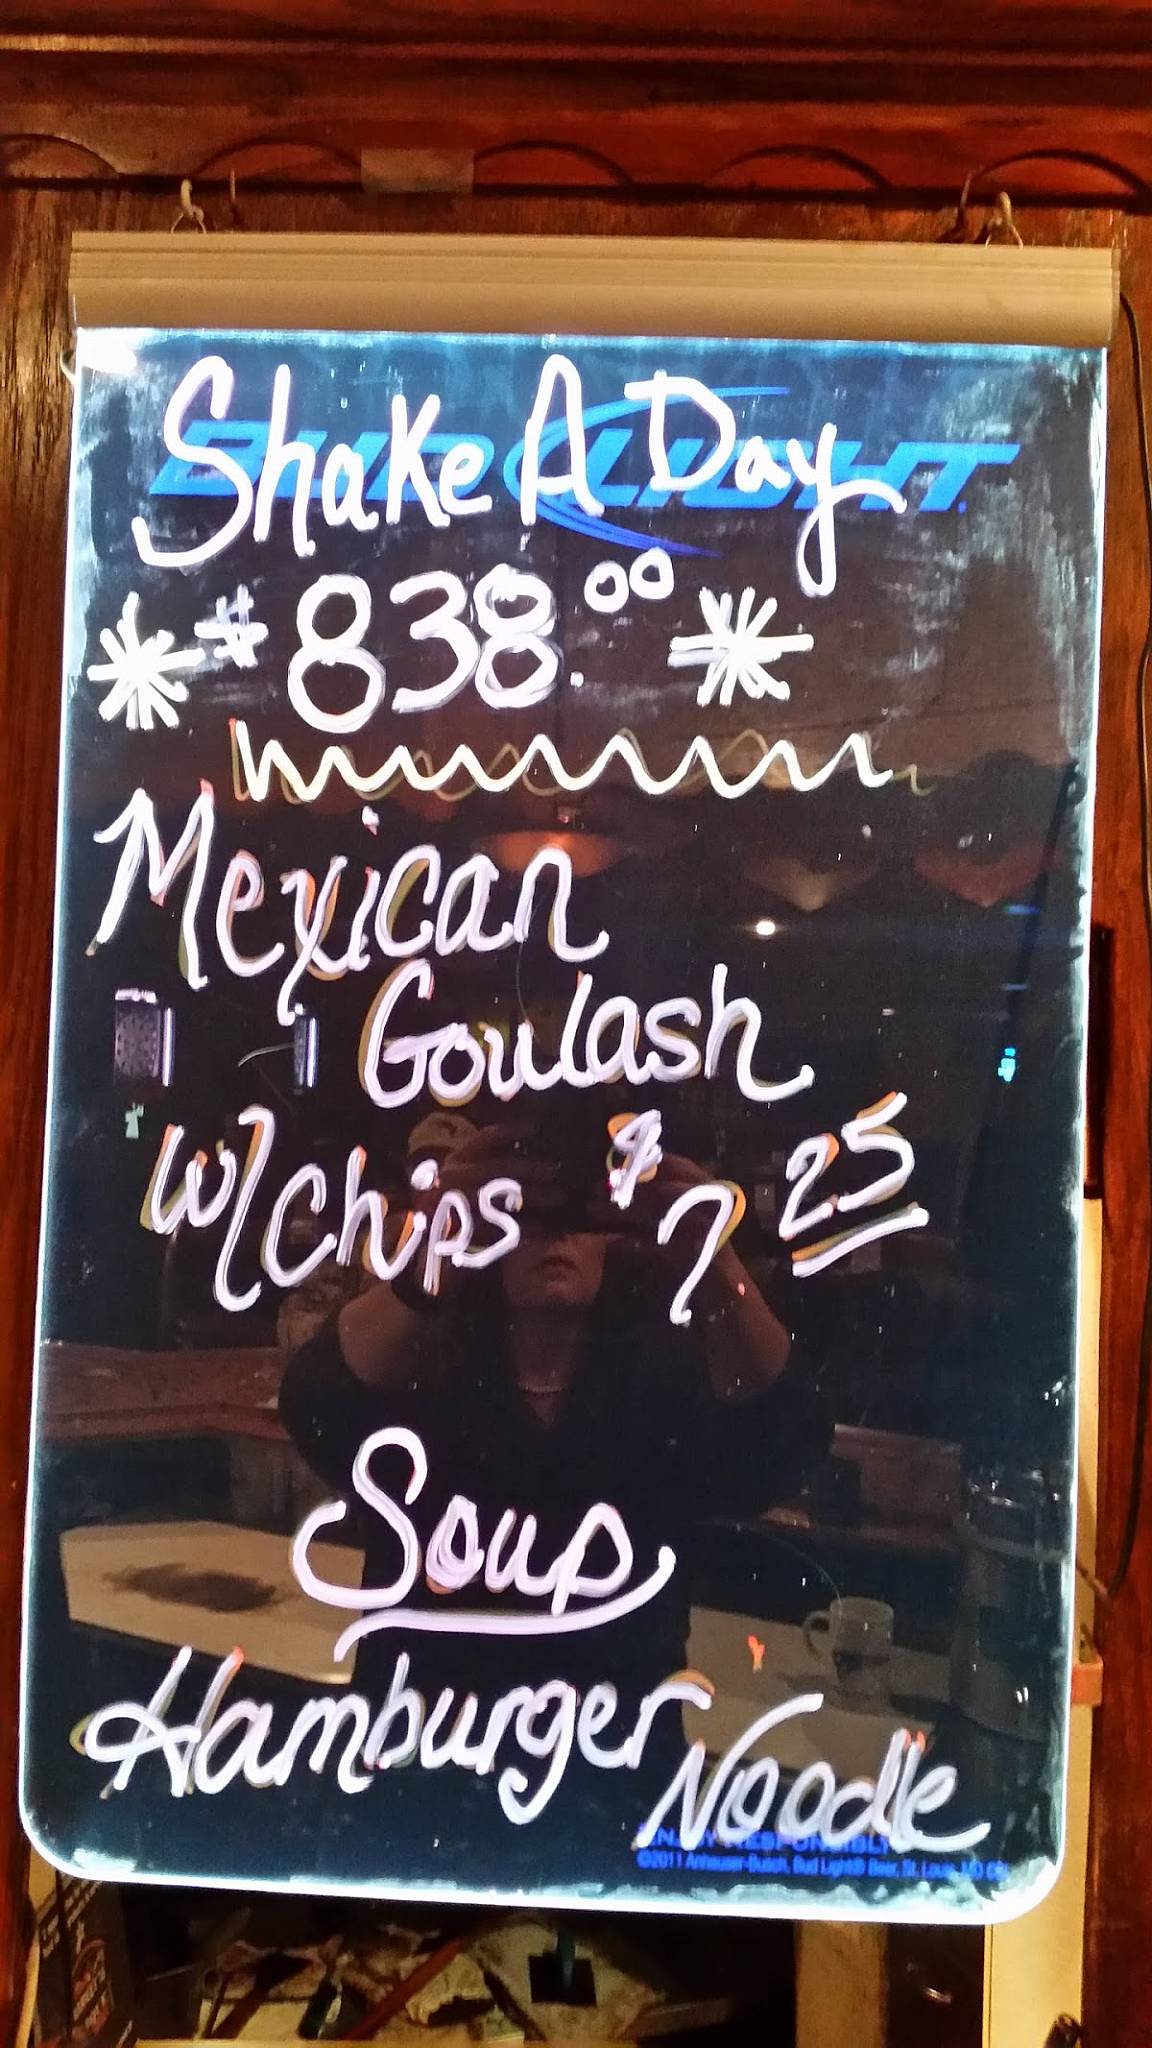 BUD LIGHT
Shake A Day
* $838.00 *
Mexican
Goulash
w/ Chips $7 25
Soup
Hamburger
Noodle
ENJOY RESPONSIBLY
©2011 Anheuser-Busch, Bud Light® Beer, St. Louis, MO